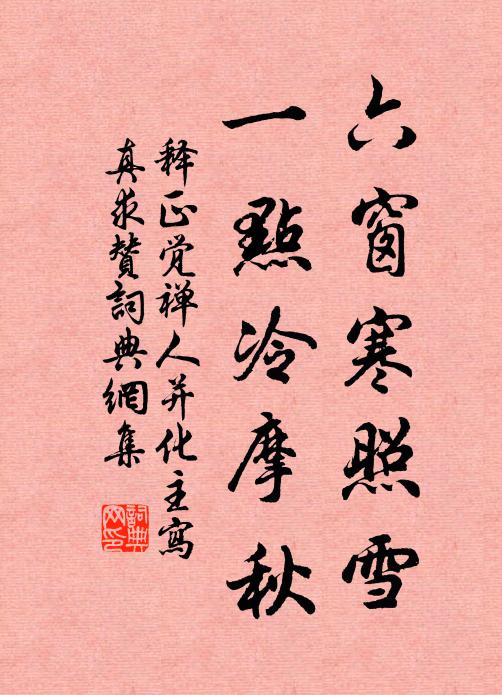 六窗寒照雪
一點冷摩秋
释正觉禅人并化主寫
真求赞詞典網集
詞典网印